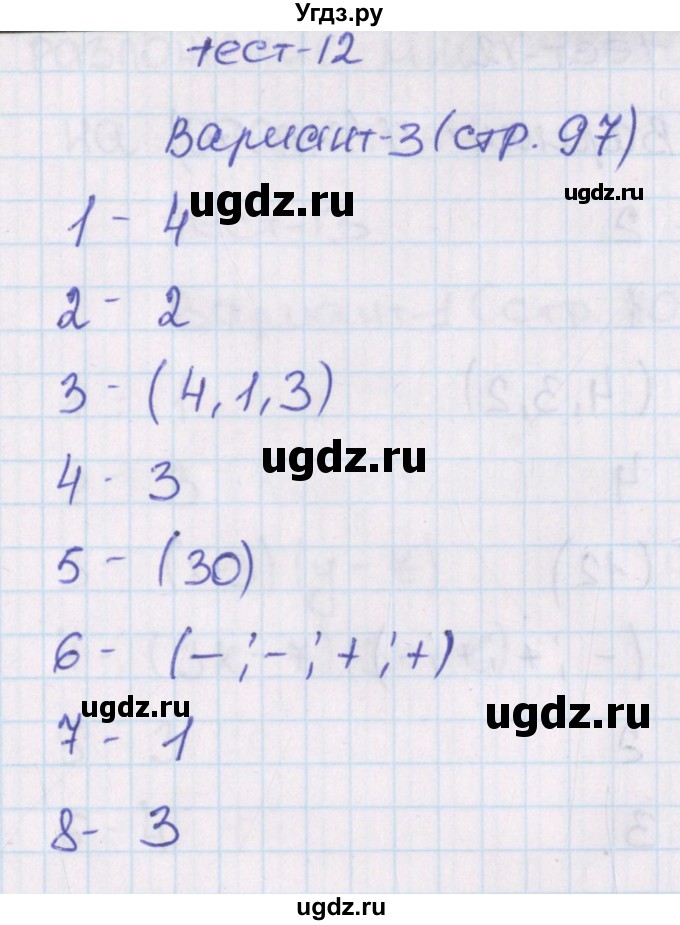 Угдз.ру
тест-12
Вариант-3 (стр. 97)
ugdz.ru
ugdz.ru
1 - 4
2 - 2
3 - (4,1,3)
ugdz.ru
4 - 3
5 - (30)
6 - (-;-;+;+)
ugdz.ru
ugdz.ru
7 - 1
8- 3
ugdz.ru